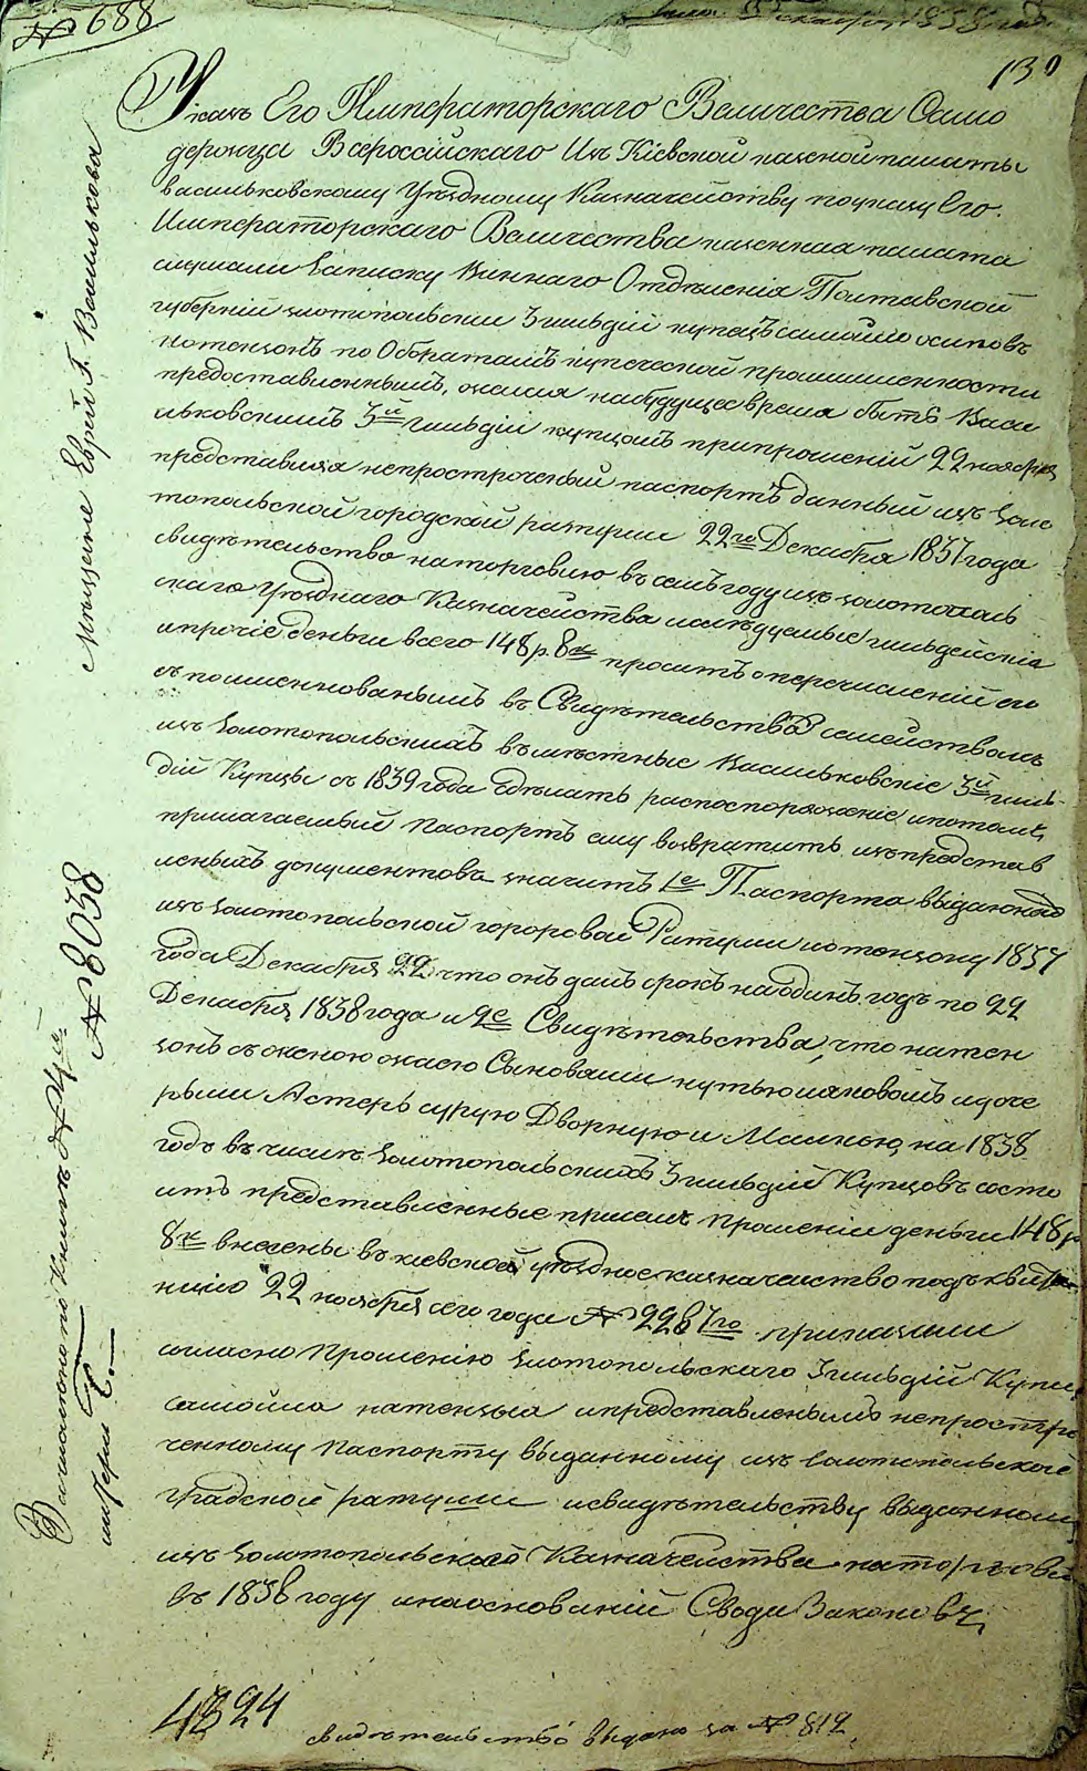 № 688
Декабря 1838 года
130
Указъ Его Императорскаго Величества Само
держца Всероссійскаго Изъ Кіевской казеной палаты
васильковскому Уѣздному Казначейству поуказу Его
Императорскаго Величества казенная палата
слушали Записку Виннаго Отдѣленія Полтавской
губерніи золотопольскій 3 гильдіи купецъ самойло осиповъ
нотензонъ по Оборотамъ купеческой промышленности
предоставленнымъ, желая набудущее время быть Васи
льковскимъ 3й гильдіи купцомъ припрошеніи 22 ноября
представляя непростроченый паспортъ данный изъ Золо
топольской городской ратуши 22го Декабря 1837 года
свидѣтельство наторговлю въ семъ году изъ золотополь
скаго Уѣзднаго Казначейства иследуемые гильдейскіе
ипрочіе деньги всего 148 р. 8 к проситъ оперечисленіи его
съ поименнованымъ въ Свидѣтельствѣ семействомъ
изъ Золотопольскихъ въ мѣстные Васильковскіе 3й гиль
діи Купцы съ 1839 года сдѣлать распоспоряженіе, ипотомъ
прилагаемый паспортъ ему возвратить изъ представ
леныхъ документовъ значитъ 1е Паспорта выданнаго
изъ Золотопольской городовой Ратуши нотензону 1837
года Декабря 22 что онъ данъ срокъ на одинъ годъ по 22
Декабря 1838 года и 2е Свидѣтельства, что натен
зонъ съ женою жасею Сыновьями нутью и дочe
рьми Астеръ сурую Дворкую и Малкою, на 1838
годъ въ числѣ Золотопольскихъ 3 гильдіи Купцовъ состо
итъ представленные присемъ прошеніи деньги 148 р
8 к внесены въ кіевское уѣздное казначейство подъ квитан
цію 22 ноября сего года № 2287го приказали
согласно Прошенію Золотопольскаго 3 гильдіи Купца
самойла натензыа ипредставленымъ непростро
ченному паспорту выданному изъ Золотопольской
градской ратуши исвидѣтельству выданному
изъ Золотопольскаго Казначейства на торговлю
въ 1838 году инаоснованіи Свода Законовъ
4324
свидѣтельство выдано за № 812
Мѣщане Еврей Г. Василькова
№ 8038
Записано по Книгѣ